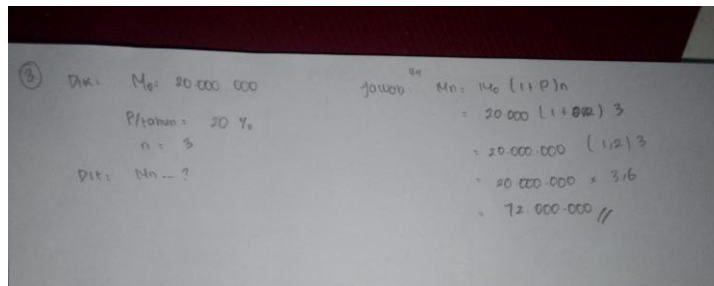 ③ Dik: M₀: 20.000.000
P/tahun: 20 %
n: 3
Dit: Mn ... ?
Jawab Mn: M₀ (1+P)n
= 20 000 (1+0,2) 3
= 20.000.000 (1,2) 3
= 20.000.000 x 3,6
= 72.000.000 //